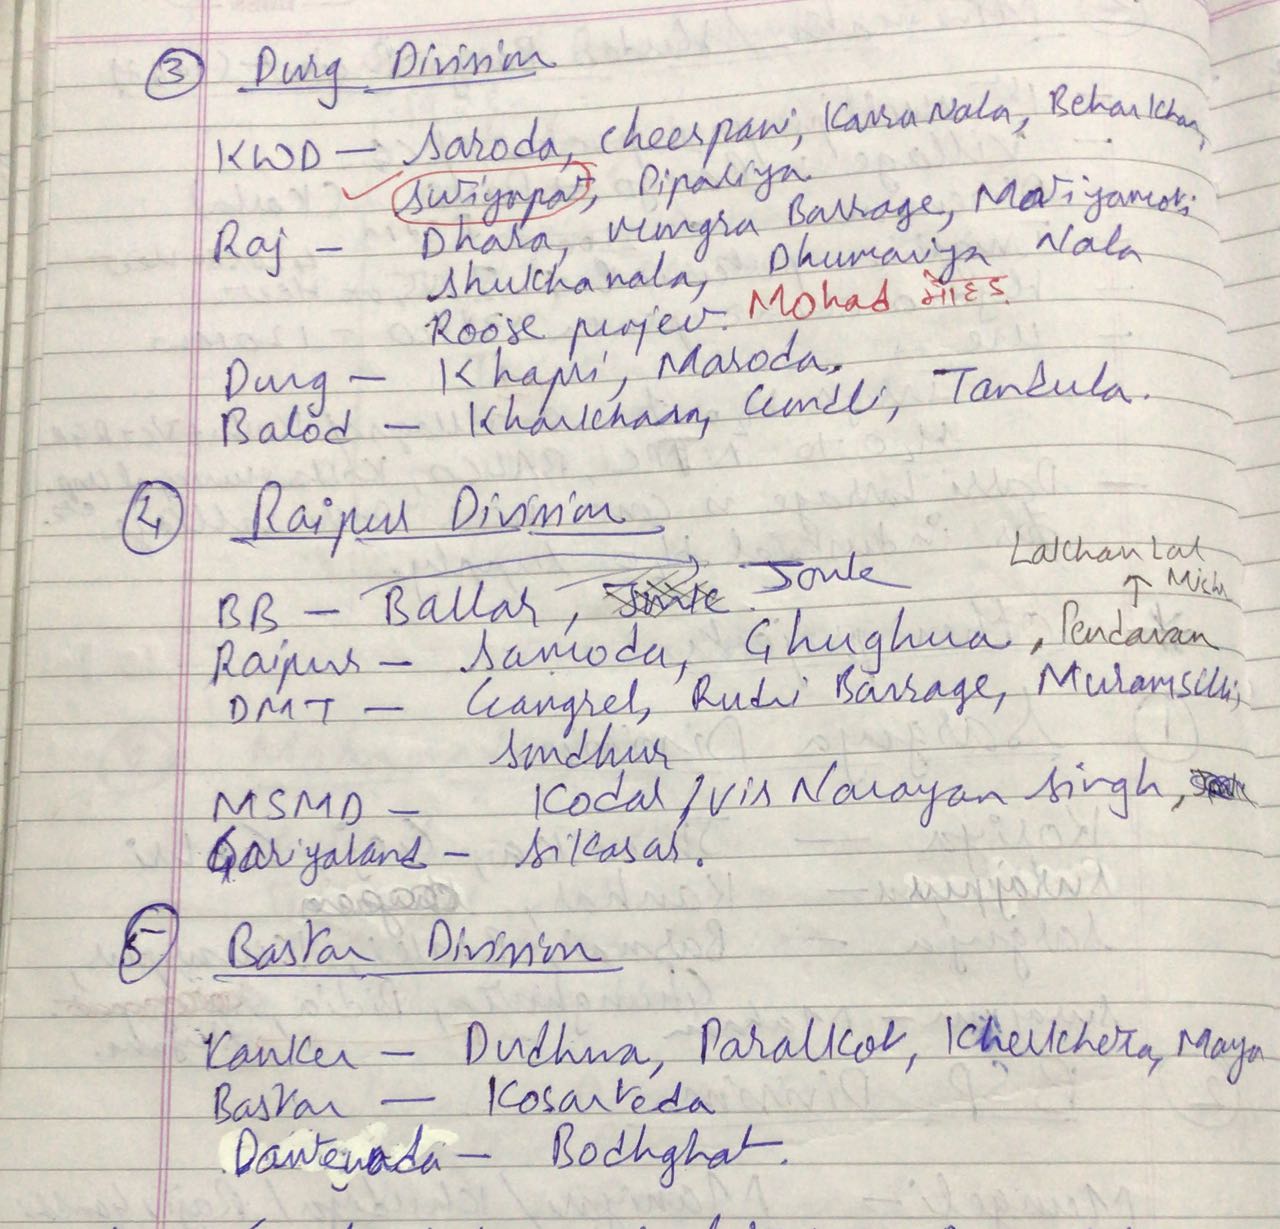 ③ Durg Division
KWD — Saroda, Cheerpani, Karra Nala, Beharkhar,
Sutiyapat, Pipariya
Raj — Dhara, Mongra Barrage, Matiyamoti
Shukhanala, Dhumariya Nala
Roose projec. Mohad
Durg — Khapri, Maroda.
Balod — Kharkhara, Gondli, Tandula.
④ Raipur Division
Lakhan Lal
BB — Ballar, Jonk
↑ Mishr
Raipur — Samoda, Ghughua, Pendravan
DMT — Gangrel, Rudri Barrage, Muramsilli,
Sondhur
MSMD — Kodar / Vir Narayan Singh,
Gariyaband — Sikasar.
5 Bastar Division
Kanker — Dudhwa, Paralkot, Kherkheta, Mayan
Bastar — Kosarteda
Dantewada — Bodhghat.